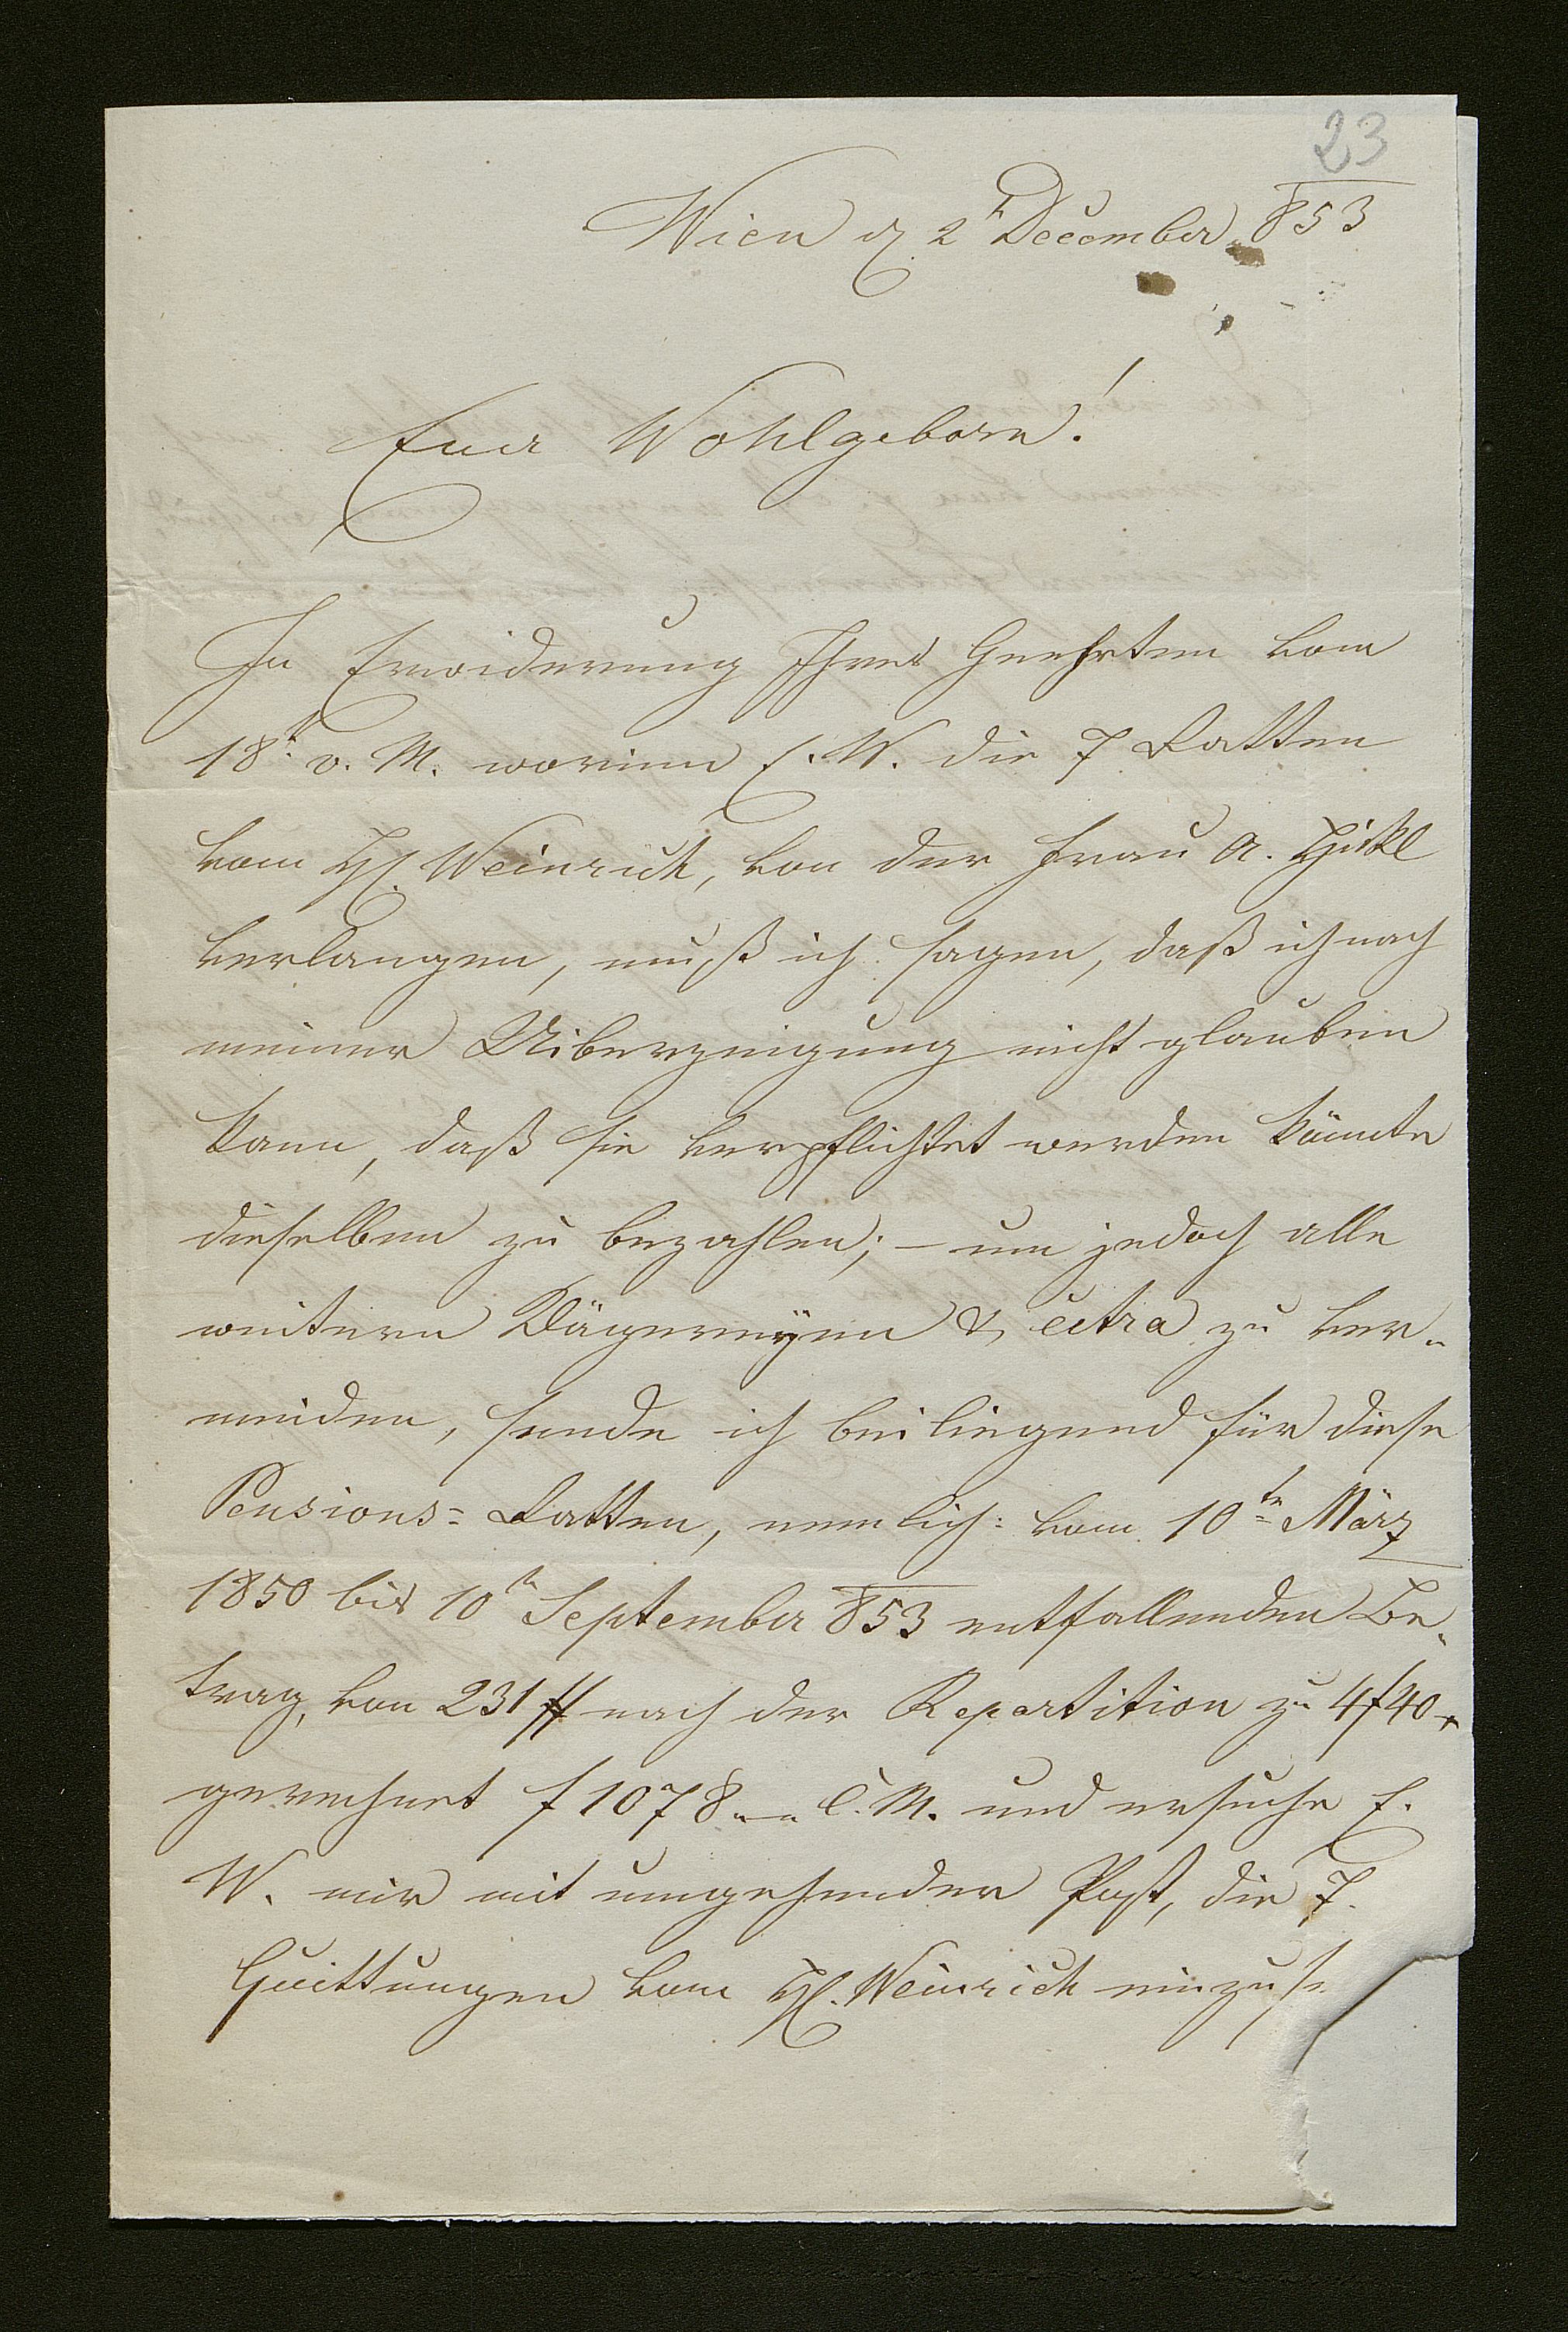 23
Wien d. 2t December 853
Euer Wohlgeborn!
In Erwiderung Ihres Geehrten vom
18t. v. M. worinn E. W. die 7 Ratten
vom H. Weinrich, von der Frau A. Hikl
verlangen, muß ich sagen, daß ich nach
meiner Uiberzeigung nicht glauben
kann, daß sie verpflichtet werden könnte
dieselben zu bezahlen; – um jedoch alle
weitern Plägereyen & cetra zu ver-
meiden, sende ich beiliegend für diese
Pensions= Ratten, nemlich: vom 10tn März
1850 bis 10tn September 853 entfallenden Be-
trag, von 231 ff nach der Repartition zu 4f40x
gerechnet f 1078 „–„ C. M. und ersuche E.
W. mir mit umgehender Post, die 7.
Quittungen vom H. Weinrich einzuse